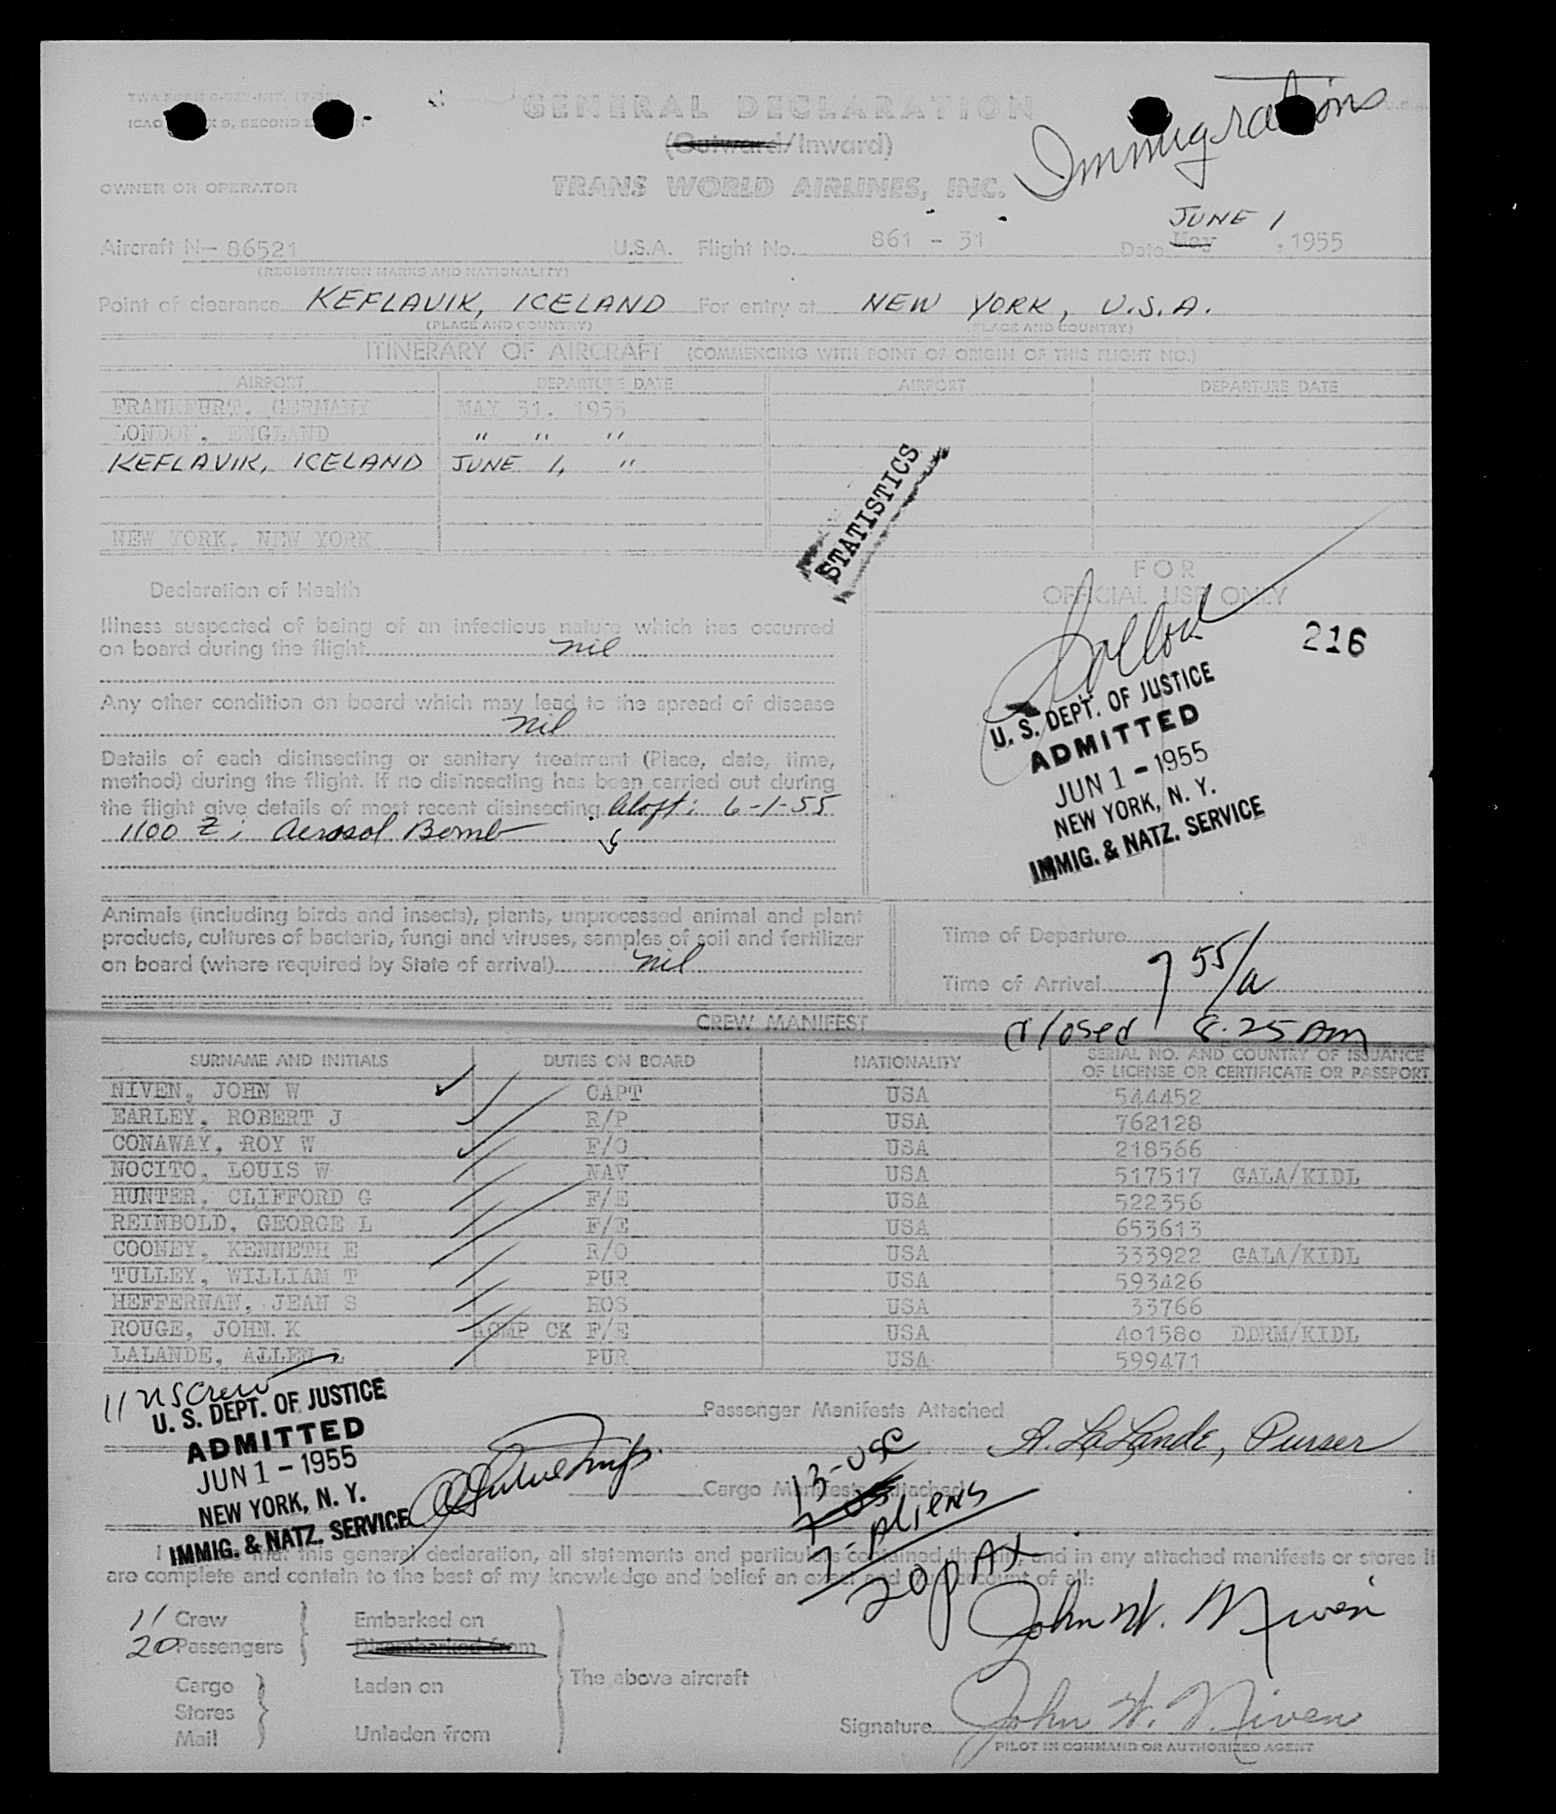 GENERAL DECLARATION
(Outward/Inward)
Immigrations
OWNER OR OPERATOR TRANS WORLD AIRLINES, INC.
JUNE 1
Aircraft N-86521 U.S.A. Flight No. 861 - 31 Date May , 1955
(REGISTRATION MARKS AND NATIONALITY)
Point of clearance KEFLAVIK, ICELAND For entry at NEW YORK, U.S.A.
(PLACE AND COUNTRY) (PLACE AND COUNTRY)
ITINERARY OF AIRCRAFT (COMMENCING WITH POINT OF ORIGIN OF THIS FLIGHT NO.)
AIRPORT DEPARTURE DATE AIRPORT DEPARTURE DATE
FRANKFURT, GERMANY MAY 31, 1955
LONDON, ENGLAND " " "
KEFLAVIK, ICELAND JUNE 1, "
NEW YORK, NEW YORK
STATISTICS
FOR
OFFICIAL USE ONLY
216
U. S. DEPT. OF JUSTICE
ADMITTED
JUN 1 - 1955
NEW YORK, N. Y.
IMMIG. & NATZ. SERVICE
Declaration of Health
Illness suspected of being of an infectious nature which has occurred
on board during the flight nil
Any other condition on board which may lead to the spread of disease
nil
Details of each disinsecting or sanitary treatment (Place, date, time,
method) during the flight. If no disinsecting has been carried out during
the flight give details of most recent disinsecting. Aloft; 6-1-55
1100 Z; Aerosol Bomb
Animals (including birds and insects), plants, unprocessed animal and plant
products, cultures of bacteria, fungi and viruses, samples of soil and fertilizer
on board (where required by State of arrival) nil
Time of Departure
Time of Arrival 7 55/a
closed 8.25 am
CREW MANIFEST
SURNAME AND INITIALS DUTIES ON BOARD NATIONALITY SERIAL NO. AND COUNTRY OF ISSUANCE
OF LICENSE OR CERTIFICATE OR PASSPORT
NIVEN, JOHN W CAPT USA 544452
EARLEY, ROBERT J R/P USA 762128
CONAWAY, ROY W F/O USA 218566
NOCITO, LOUIS W NAV USA 517517 GALA/KIDL
HUNTER, CLIFFORD G F/E USA 522356
REINBOLD, GEORGE L F/E USA 653613
COONEY, KENNETH E R/O USA 333922 GALA/KIDL
TULLEY, WILLIAM T PUR USA 593426
HEFFERNAN, JEAN S HOS USA 33766
ROUGE, JOHN K COMP CK F/E USA 401580 DDRM/KIDL
LALANDE, ALLEN L PUR USA 599471
11 US Crew
U. S. DEPT. OF JUSTICE
ADMITTED
JUN 1 - 1955
NEW YORK, N. Y.
IMMIG. & NATZ. SERVICE
Passenger Manifests Attached
A. LaLande, Purser
13-USC
Cargo Manifests Attached
7-Aliens
20 PAX
this general declaration, all statements and particulars contained therein, and in any attached manifests or stores
are complete and contain to the best of my knowledge and belief an exact and account of all:
John W. Niven
11 Crew Embarked on
20 Passengers Disembarked from
Cargo Laden on The above aircraft
Stores
Mail Unladen from
Signature John W. Niven
PILOT IN COMMAND OR AUTHORIZED AGENT